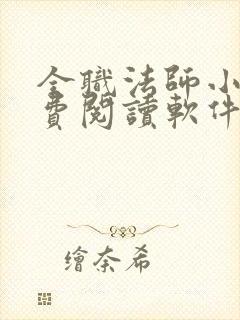 全職法師小
費閱讀軟件
繪奈希